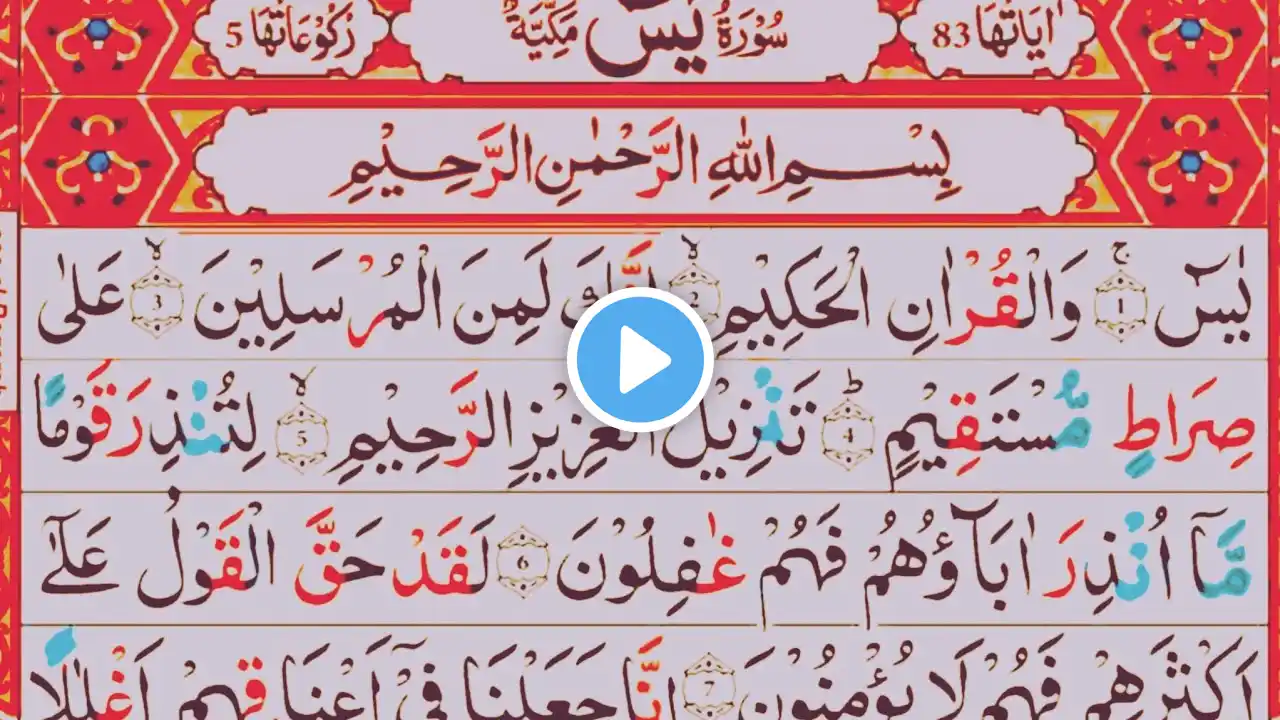 اٰيَاتُهَا 83 سُوْرَةُ يٰسٓ مَكِّيَّةٌ رُكُوْعَاتُهَا 5
بِسْمِ اللّٰهِ الرَّحْمٰنِ الرَّحِيْمِ
يٰسٓ ۚ 1 وَالْقُرْاٰنِ الْحَكِيْمِ ۙ 2 اِنَّكَ لَمِنَ الْمُرْسَلِيْنَ ۙ 3 عَلٰى
صِرَاطٍ مُّسْتَقِيْمٍ ؕ 4 تَنْزِيْلَ الْعَزِيْزِ الرَّحِيْمِ ۙ 5 لِتُنْذِرَ قَوْمًا
مَّاۤ اُنْذِرَ اٰبَآؤُهُمْ فَهُمْ غٰفِلُوْنَ 6 لَقَدْ حَقَّ الْقَوْلُ عَلٰٓى
اَكْثَرِهِمْ فَهُمْ لَا يُؤْمِنُوْنَ 7 اِنَّا جَعَلْنَا فِيْۤ اَعْنَاقِهِمْ اَغْلٰلًا